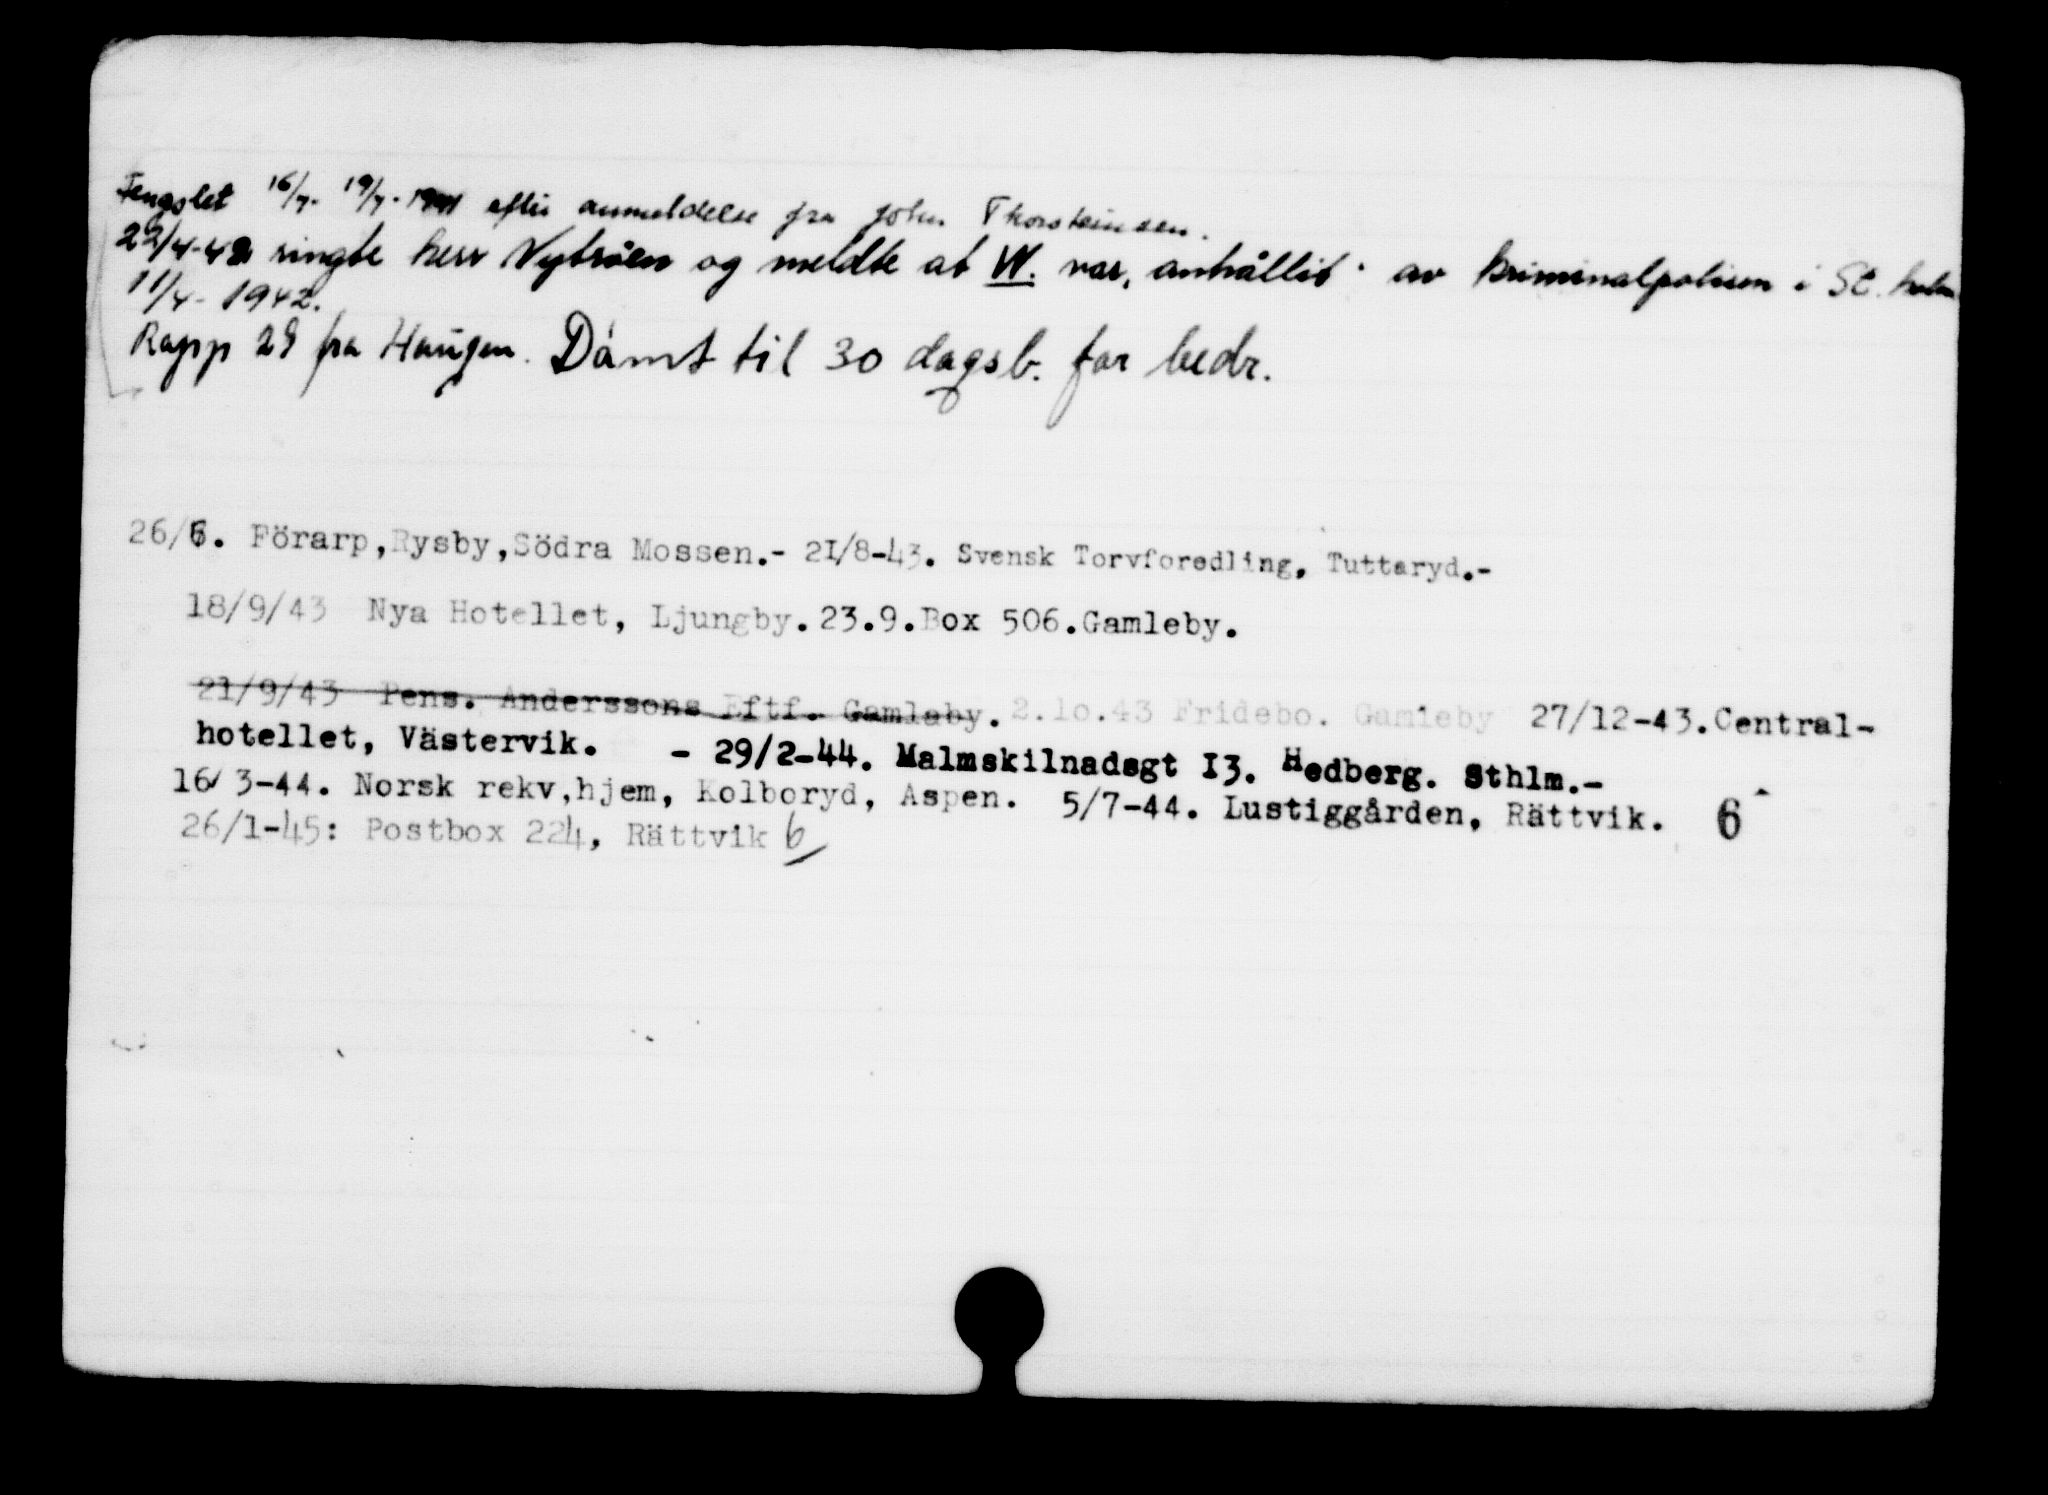 Fengslet 16/7. 19/7. 1941 efter anmeldelse fra John Thorsteinsen.
22/4-42 ringte herr Nytrøen og meldte at W. var, anhållit av kriminalpolisen i St.holm
11/4- 1942.
Rapp 29 fra Haugen. Dömt til 30 dagsb. for bedr.
26/6. Förarp,Rysby,Södra Mossen.- 21/8-43. Svensk Torvforedling, Tuttaryd.-
18/9/43 Nya Hotellet, Ljungby. 23.9.Box 506.Gamleby.
21/9/43 Pens. Anderssons Eftf. Gamlaby. 2.10.43 Fridebo. Gamleby 27/12-43.Central-
hotellet, Västervik. - 29/2-44. Malmskilnadsgt 13. Hedberg. Sthlm.-
16/3-44. Norsk rekv,hjem, Kolboryd, Aspen. 5/7-44. Lustiggården, Rättvik. 6
26/1-45: Postbox 224, Rättvik 6